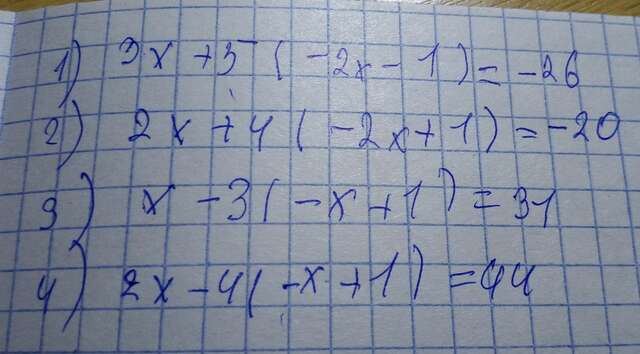 1) 3x + 5(-2x - 1) = -26
2) 2x + 4(-2x + 1) = -20
3) x - 3(-x + 1) = 31
4) 2x - 4(-x + 1) = 44